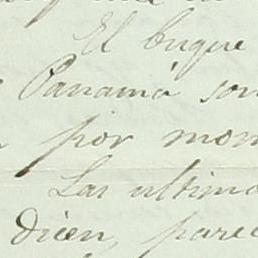 El buque
Panamá son
por mom
Las ultima
dicen, pare